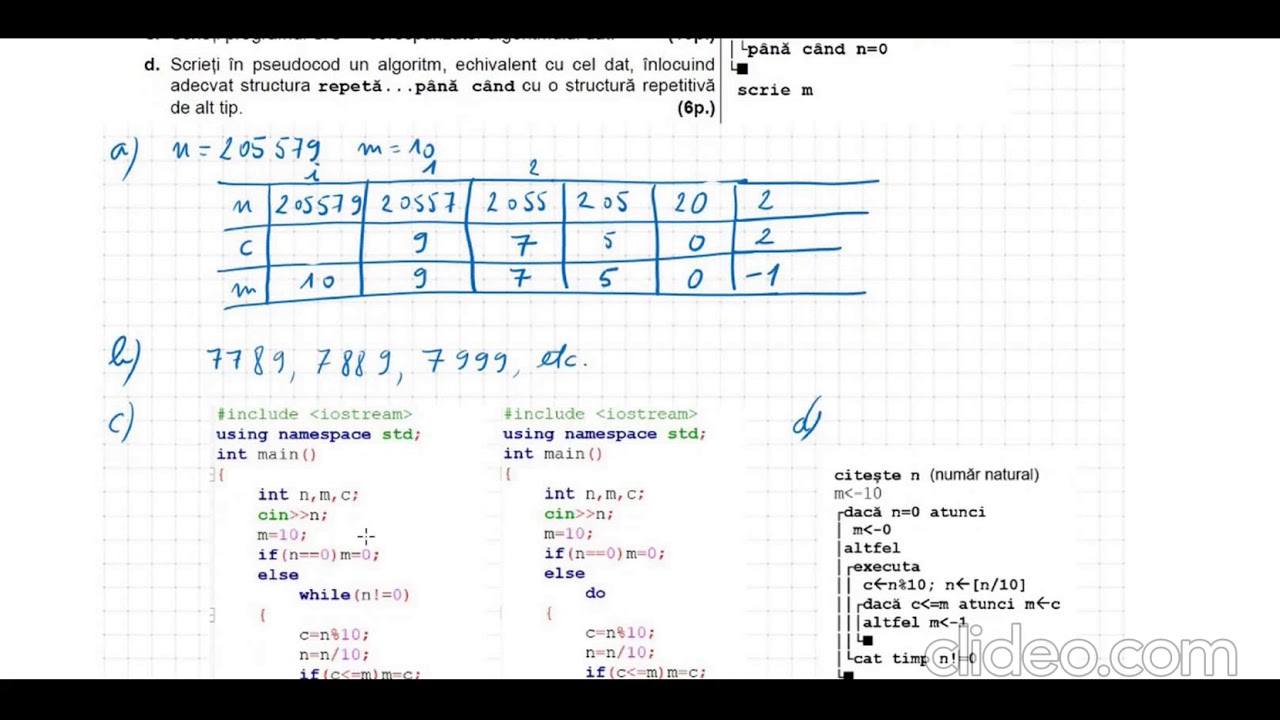 d. Scrieți în pseudocod un algoritm, echivalent cu cel dat, înlocuind
adecvat structura repetă...până când cu o structură repetitivă
de alt tip. (6p.)
până când n=0
scrie m
a) n = 205579 m = 10
i 1 2
n 205579 20557 2055 205 20 2
c 9 7 5 0 2
m 10 9 7 5 0 -1
b) 7789, 7889, 7999, etc.
c)
#include <iostream>
using namespace std;
int main()
{
int n,m,c;
cin>>n;
m=10;
if(n==0)m=0;
else
while(n!=0)
{
c=n%10;
n=n/10;
if(c<=m)m=c;
#include <iostream>
using namespace std;
int main()
{
int n,m,c;
cin>>n;
m=10;
if(n==0)m=0;
else
do
{
c=n%10;
n=n/10;
if(c<=m)m=c;
d)
citește n (număr natural)
m<-10
dacă n=0 atunci
m<-0
altfel
executa
c←n%10; n←[n/10]
dacă c<=m atunci m←c
altfel m<-1
cat timp n!=0
clideo.com